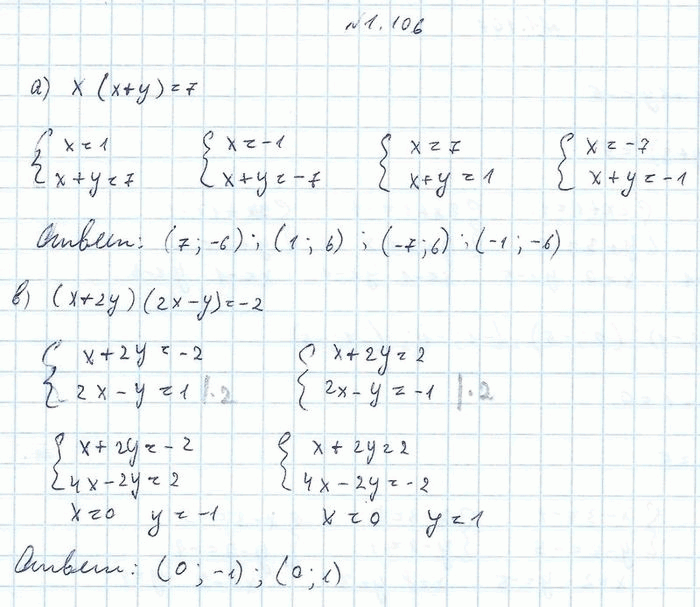 №1.106
а) x (x+y) = 7
{ x = 1 { x = -1 { x = 7 { x = -7
x+y = 7 x+y = -7 x+y = 1 x+y = -1
Ответ: (7; -6); (1; 6); (-7; 6); (-1; -6)
в) (x+2y)(2x-y) = -2
{ x+2y = -2 { x+2y = 2
2x-y = 1 |·2 2x-y = -1 |·2
{ x+2y = -2 { x+2y = 2
4x-2y = 2 4x-2y = -2
x = 0 y = -1 x = 0 y = 1
Ответ: (0; -1); (0; 1)